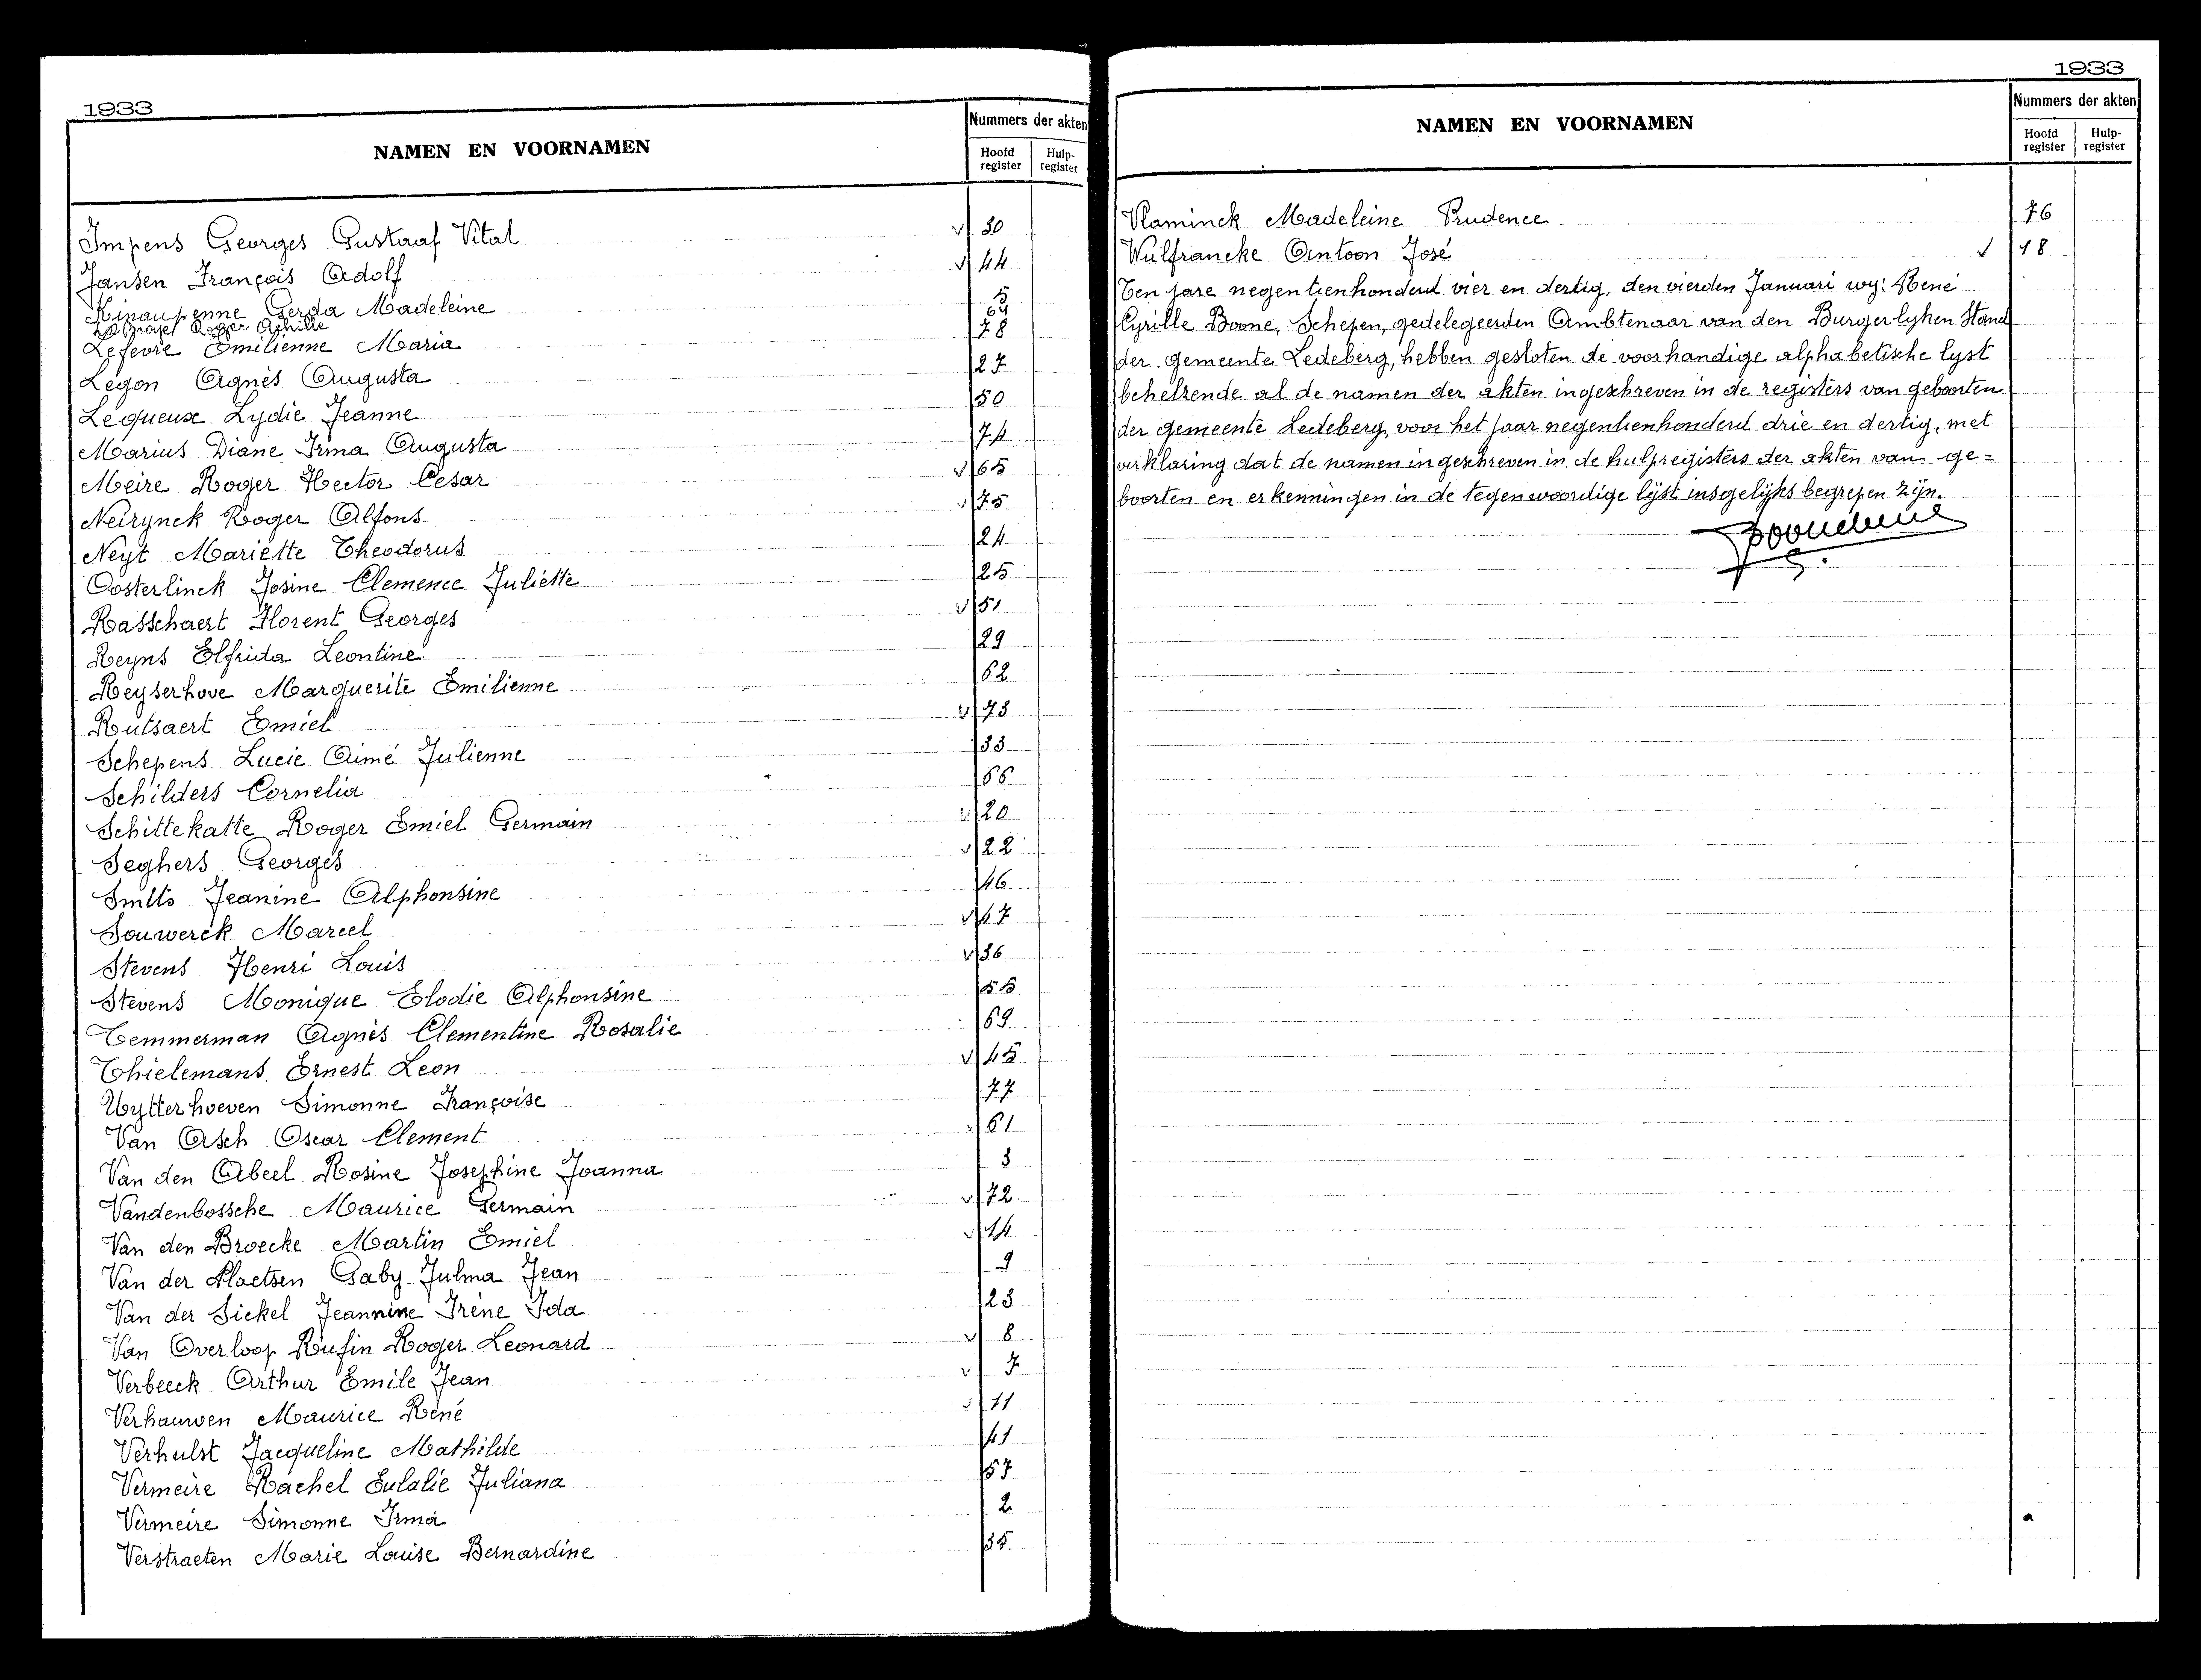 1933
NAMEN EN VOORNAMEN
Nummers der akten
Hoofd register
Hulp- register
Impens Georges Gustaaf Vital √ 30
Jansen François Adolf √ 44
Kinaupenne Gerda Madeleine 5
Roger Achille 64
Lefevre Emilienne Maria 78
Legon Agnès Augusta 27
Lequeux Lydie Jeanne 50
Marius Diane Irma Augusta 74
Meire Roger Hector Cesar √ 65
Neirynck Roger Alfons √ 75
Neyt Mariette Theodorus 24
Oosterlinck Josine Clemence Juliette 25
Rasschaert Florent Georges √ 51
Reyns Elfrida Leontine 29
Reyserhove Marguerite Emilienne 62
Rutsaert Emiel √ 73
Schepens Lucie Aimé Julienne 33
Schilders Cornelia 66
Schittekatte Roger Emiel Germain √ 20
Seghers Georges √ 22
Smits Jeanine Alphonsine 46
Souwerck Marcel √ 47
Stevens Henri Louis √ 36
Stevens Monique Elodie Alphonsine 55
Temmerman Agnès Clementine Rosalie 69
Thielemans Ernest Leon √ 45
Uytterhoeven Simonne Françoise 77
Van Asch Oscar Clement √ 61
Van den Abeel Rosine Josephine Joanna 3
Vandenbossche Maurice Germain √ 72
Van den Broecke Martin Emiel √ 14
Van der Plaetsen Gaby Julma Jean 9
Van der Sickel Jeannine Irène Ida 23
Van Overloop Rufin Roger Leonard √ 8
Verbeeck Arthur Emile Jean √ 7
Verhauwen Maurice René √ 11
Verhulst Jacqueline Mathilde 41
Vermeire Rachel Eulalie Juliana 57
Vermeire Simonne Irma 2
Verstraeten Marie Louise Bernardine 35
1933
NAMEN EN VOORNAMEN
Nummers der akten
Hoofd register
Hulp- register
Vlaminck Madeleine Prudence 76
Wulfrancke Antoon José √ 18
Ten jare negentienhonderd vier en dertig, den vierden Januari wy: René
Cyrille Boone, Schepen, gedelegeerden Ambtenaar van den Burgerlyken Stand
der gemeente Ledeberg, hebben gesloten de voorhandige alphabetische lyst
behelzende al de namen der akten ingeschreven in de registers van geboorten
der gemeente Ledeberg, voor het jaar negentienhonderd drie en dertig, met
verklaring dat de namen ingeschreven in de hulpregisters der akten van ge=
boorten en erkenningen in de tegenwoordige lijst insgelijks begrepen zijn.